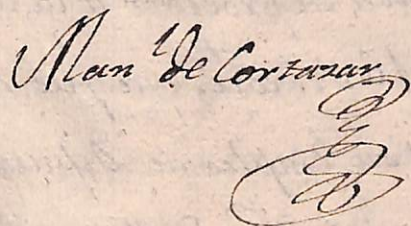 Man^l de Cortazar